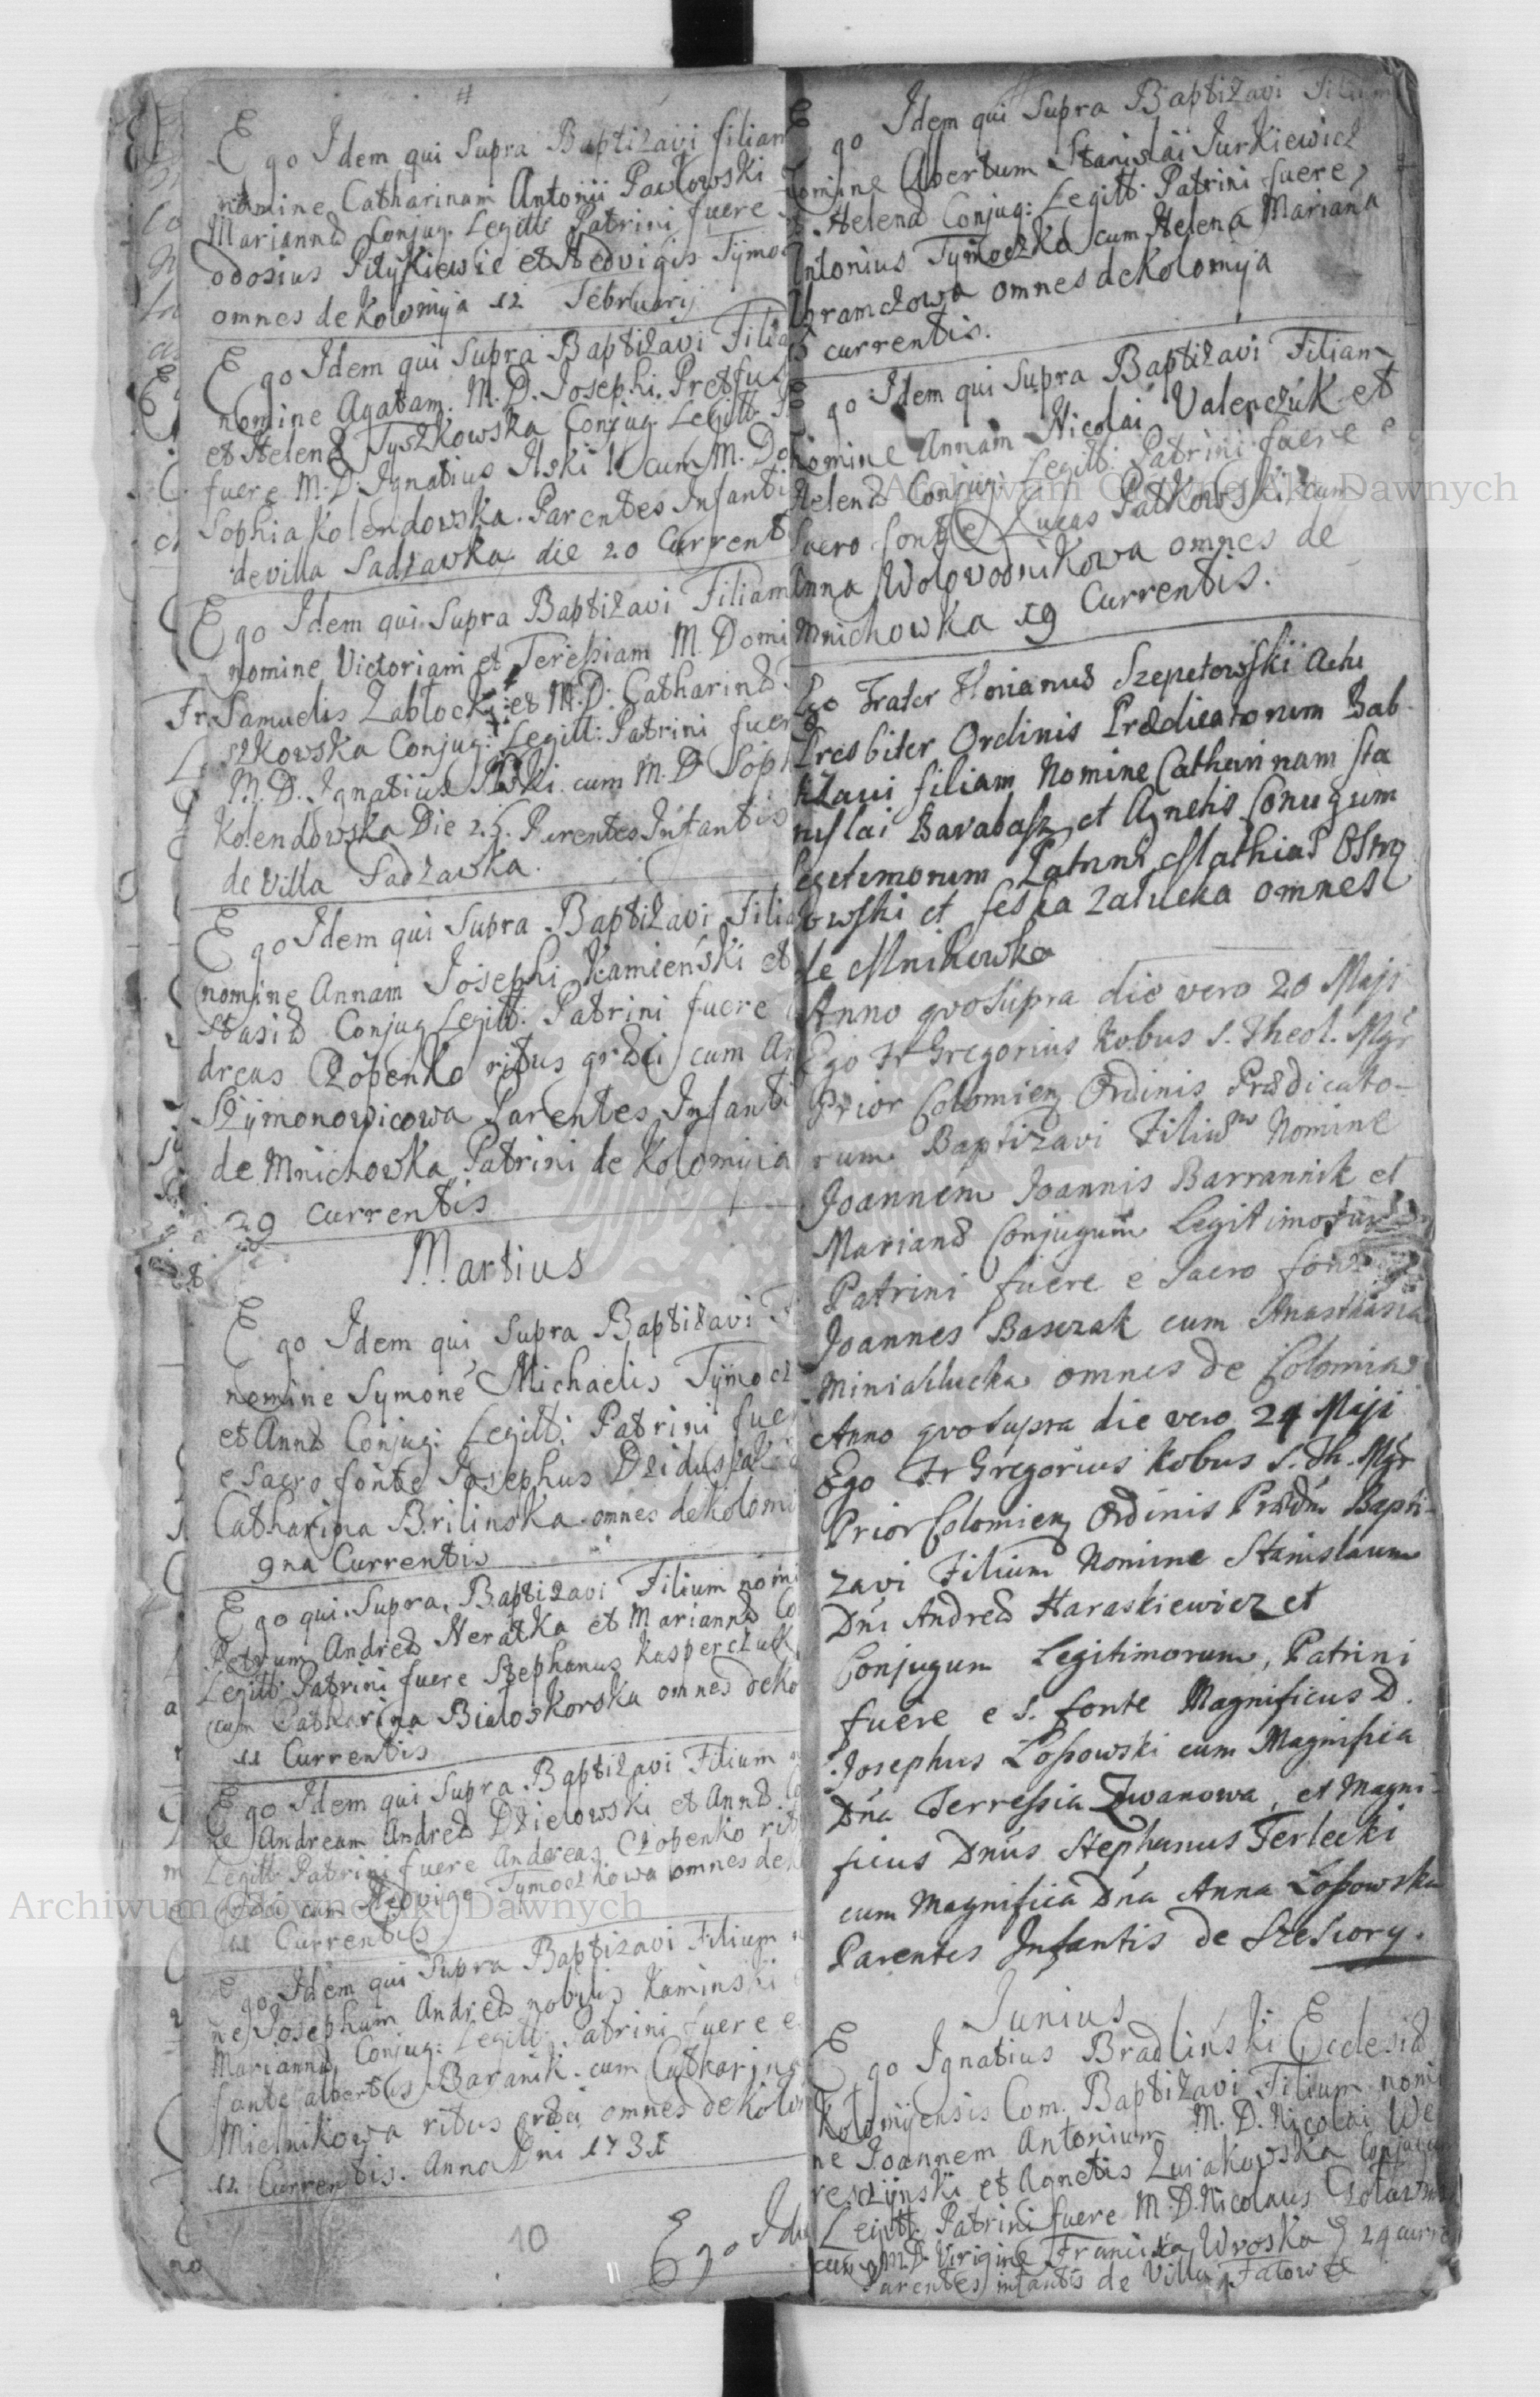 Ego Idem qui Supra Baptizavi filiam
nomine Catharinam Antonii Pawłowski
Mariannæ Conjug. Legitt. Patrini fuere
odosius Pilykiewic et Hedvigis Tymo
omnes de Kolomyja 12 Februarij
Ego Idem qui Supra Baptizavi Filia
nomine Agatam. M. D. Josephi Pretfu
et Helenæ Tyszkowska Conjug. Legitt.
fuere M. D. Ignatius Ilski cum M. Do
Sophia Kolendowska. Parentes Infanti
de villa Sadzawka die 20 Current
Ego Idem qui Supra Baptizavi Filiam
nomine Victoriam et Teressiam M. Domi
Samuelis Zabłocki et M. D. Catharinæ
szkowska Conjug: Legitt: Patrini fuer
M. D. Ignatius Ilski cum M. D. Soph
Kolendowska Die 25. Parentes Infantis
de Villa Sadzawka.
Ego Idem qui Supra Baptizavi Filia
nomine Annam Josephi Kamieński et
stasiæ Conjug Legitt. Patrini fuere
dreas Czopenko ritus græci cum An
Szymonowicowa Parentes Infanti
de Mnichowka Patrini de Kolomyia
29 Currentis
Martius
Ego Idem qui Supra Baptizavi F
nomine Symone Michaelis Tymocz
et Annæ Conjug: Legitt: Patrini fue
e Sacro fonte Josephus Dziduszak
Catharina Brilinska omnes de Kolomi
9na Currentis
Ego qui Supra Baptizavi Filium nomi
Petrum Andreæ Neratka et Mariannæ Co
Legitt. Patrini fuere Stephanus Kasperczuk
cum Catharina Białoskorska omnes de Ko
11 Currentis
Ego Idem qui Supra Baptizavi Filium
ne Andream Andreæ Dzielowski et Annæ Co
Legitt. Patrini fuere Andreas Czopenko rit
græci cum Hedvige Tymoczkowa omnes de K
Currentis
Ego Idem qui Supra Baptizavi Filium
ne Josephum Andreæ nobilis Kaminski
Mariannæ Conjug: Legitt: Patrini fuere e
fonte Albertus Baranik cum Catharina
Mielnikowa ritus græci omnes de Kolo
12 Currentis. Anno Dni 1731
10
Ego Idem
Ego Idem qui Supra Baptizavi Filium
nomine Albertum Stanislai Jurkiewicz
Helenæ Conjug: Legitt. Patrini fuere
Antonius Tymoczko cum Helena Mariana
Abramczowa omnes de Kolomyja
currentis.
Ego Idem qui Supra Baptizavi Filiam
nomine Annam Nicolai Valenczuk et
Helenæ Conjug: Legitt: Patrini fuere e
Sacro fonte Lucas Patkowski cum
Anna Wolovodnikowa omnes de
Mnichowka 19 Currentis.
Ego Frater Florianus Szepetowski Actu
Presbiter Ordinis Prædicatorum Bab
tizaui filiam Nomine Catharinnam Sta
nislai Barabasz et Agnetis Coniugum
legitimorum Patrini Mathias Ostro
owski et feska Załucka omnes
de Mnikowka
Anno quo Supra die vero 20 Maji
Ego Fr Gregorius Kobus S. Theol. Mgr
Prior Colomien Ordinis Prædicato-
rum Baptizavi Filium Nomine
Joannem Joannis Barrannik et
Marianæ Conjugum Legitimorum
Patrini fuere e Sacro fonte
Joannes Basczak cum Anasthasia
Miniallucka omnes de Colomia
Anno quo Supra die vero 24 Maji
Ego Fr Gregorius Kobus S. Th. Mgr
Prior Colomien Ordinis Prædm Bapti-
zavi Filium Nomine Stanislaum
Dni Andreæ Haraskiewicz et
Conjugum Legitimorum, Patrini
fuere e S. fonte Magnificus D.
Josephus Łossowski cum Magnifica
Dna Terressia Zwanowa, et Magni-
ficus Dnus Stephanus Terlecki
cum Magnifica Dna Anna Łossowska
Parentes Infantis de Szeszory.
Junius
Ego Ignatius Bradlinski Ecclesiæ
Kolomyensis Com. Baptizavi Filium nomi
ne Joannem Antonium M. D. Nicolai We
reszynski et Agnetis Zurakowska Conjugum
Legitt. Patrini fuere M. D. Nicolaus
cum M. D. Virgine Francisca Wroska 24 curre
Parentes infantis de Villa Fatowce
Archiwum Główne Akt Dawnych
Archiwum Główne Akt Dawnych